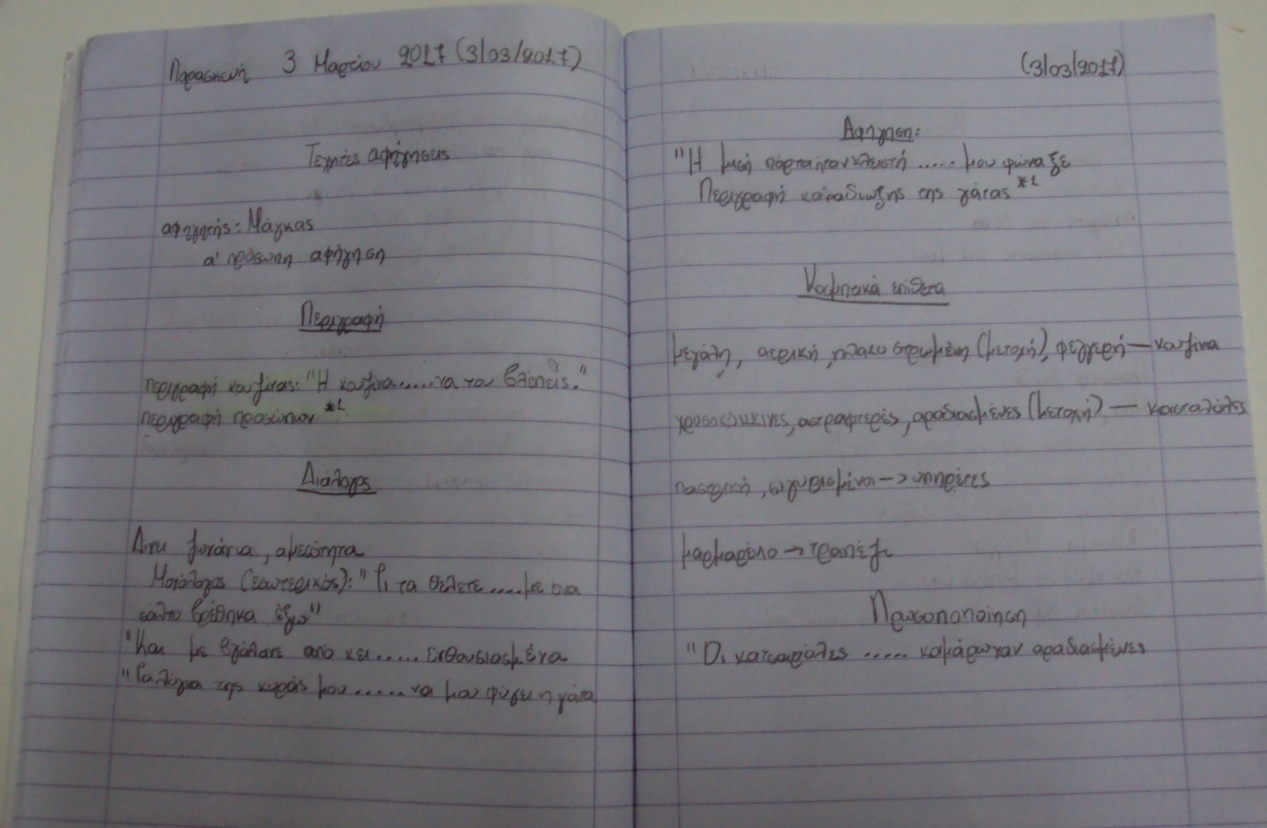 Παρασκευή 3 Μαρτίου 2017 (3/03/2017)
Τεχνικές αφήγησεις
αφηγητής: Μάγκας
α' πρόσωπη αφήγηση
Περιγραφή
περιγραφή κουζίνας: "Η κουζίνα......τα του βλέπεις."
περιγραφή προσώπων *1
Διάλογος
Δίνει ζωντάνια, αμεσότητα
Μονόλογος (εσωτερικός): "Τι τα θέλετε .....με ένα
σάλτο βρέθηκα έξω"
"Και με βγάλατε από κει ..... ενθουσιασμένα
"Τα λόγια της κυράς μου ...... να μου φύγει η γάτα
(3/03/2017)
Αφήγηση:
"Η μισή πόρτα ήταν κλειστή ..... μου φώναξε
Περιγραφή καταδίωξης της γάτας *1
Κοσμητικά επίθετα
μεγάλη, αστρική, πλακοστρωμένη (μετοχή), φεγγερή — κουζίνα
χρυσοκόκκινες, αστραφτερές, αραδιασμένες (μετοχή) — κατσαρόλες
παστρική, συγυρισμένοι -> υπηρέτες
μαρμαρένιο -> τραπέζι
Προσωποποίηση
"Οι κατσαρόλες ..... καμάρωναν αραδιασμένες